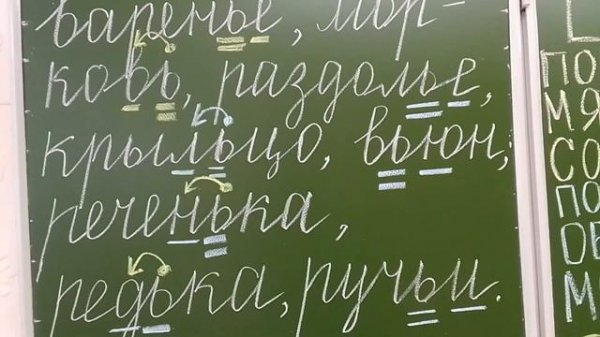 варенье, мор-
ковь, раздолье,
крыльцо, вьюн,
реченька,
редька, ручьи.
ПО
МЯ
СО
ПО
ОБ
М